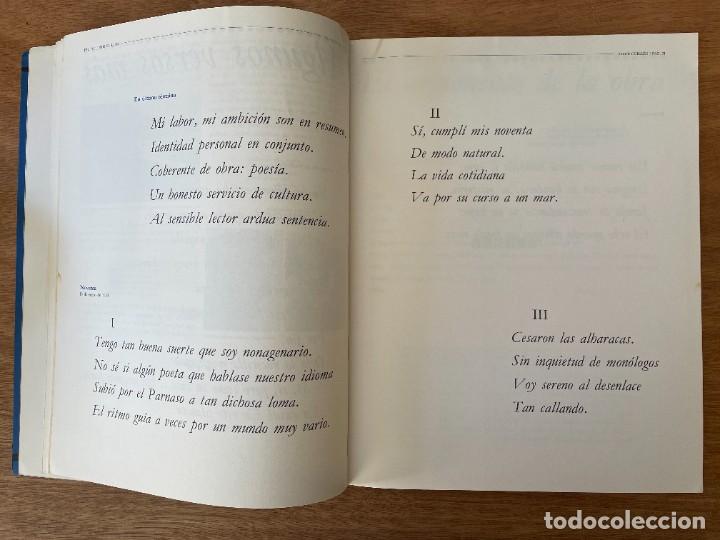 En síntesis técnica
Mi labor, mi ambición son en resumen,
Identidad personal en conjunto.
Coherente de obra: poesía.
Un honesto servicio de cultura.
Al sensible lector ardua sentencia.
I
Tengo tan buena suerte que soy nonagenario.
No sé si algún poeta que hablase nuestro idioma
Subió por el Parnaso a tan dichosa loma.
El ritmo guía a veces por un mundo muy vario.
II
Sí, cumplí mis noventa
De modo natural.
La vida cotidiana
Va por su curso a un mar.
III
Cesaron las alharacas.
Sin inquietud de monólogos
Voy sereno al desenlace
Tan callando.
todocoleccion.net